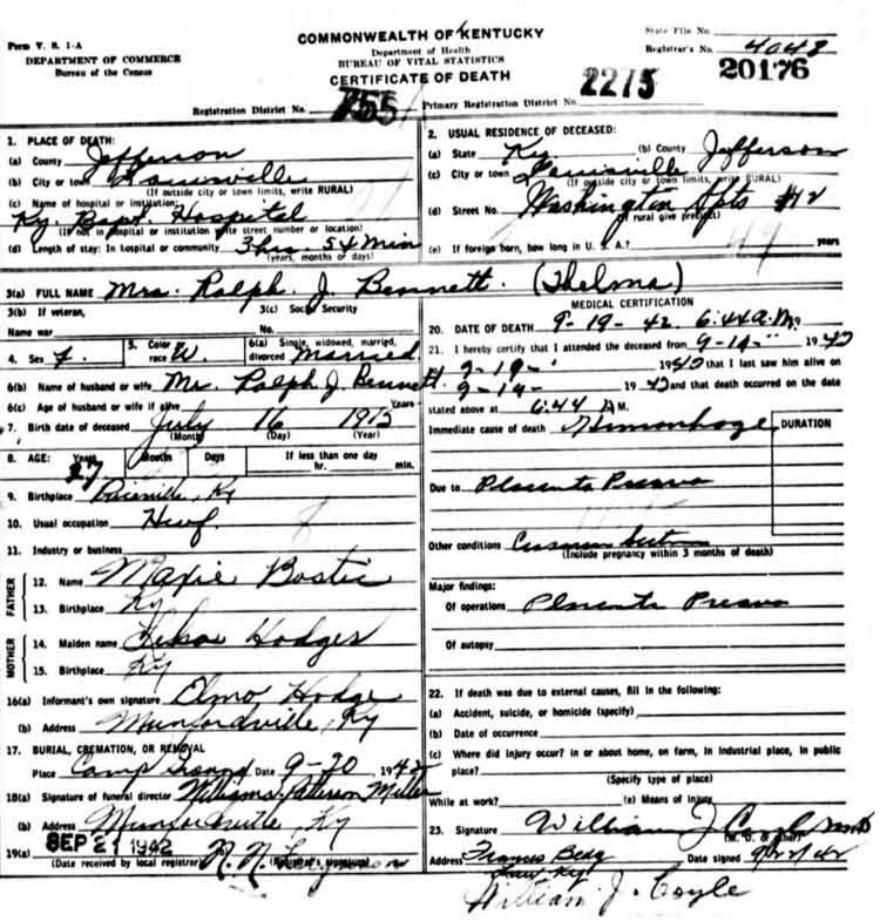 Form V. S. 1-A
DEPARTMENT OF COMMERCE
Bureau of the Census
COMMONWEALTH OF KENTUCKY
Department of Health
BUREAU OF VITAL STATISTICS
CERTIFICATE OF DEATH
State File No.
Registrar's No. 4048
20176
Registration District No. 755
Primary Registration District No. 2215
1. PLACE OF DEATH:
(a) County Jefferson
(b) City or town Louisville
(If outside city or town limits, write RURAL)
(c) Name of hospital or institution:
Ky. Bapt. Hospital
(If not in hospital or institution write street number or location)
(d) Length of stay: In hospital or community 3 hrs. 54 Min
(years, months or days)
2. USUAL RESIDENCE OF DECEASED:
(a) State Ky (b) County Jefferson
(c) City or town Louisville
(If outside city or town limits, write RURAL)
(d) Street No. Washington Apts #12
(If rural give precinct)
(e) If foreign born, how long in U. S. A.? years
3(a) FULL NAME Mrs. Ralph J. Bennett. (Thelma)
3(b) If veteran,
Name war
3(c) Social Security
No.
4. Sex F. 5. Color or race W. 6(a) Single, widowed, married, divorced Married
6(b) Name of husband or wife Mr. Ralph J. Bennett.
6(c) Age of husband or wife if alive Years
7. Birth date of deceased July 16 1915
(Month) (Day) (Year)
8. AGE: Years 27 Months Days If less than one day
hr. min.
9. Birthplace Ky
10. Usual occupation Hwf.
11. Industry or business
FATHER
12. Name Maxie Bostic
13. Birthplace Ky
MOTHER
14. Maiden name Hodges
15. Birthplace Ky
16(a) Informant's own signature Elmo Hodge
(b) Address Munfordville, Ky
17. BURIAL, CREMATION, OR REMOVAL
Place Camp Ground Date 9-20, 1942
18(a) Signature of funeral director Williams Patterson Miller
(b) Address Munfordville, Ky
19(a) SEP 21 1942
(Date received by local registrar) (Registrar's signature)
MEDICAL CERTIFICATION
20. DATE OF DEATH 9-19-42 6:44 A.M.
21. I hereby certify that I attended the deceased from 9-19- 1942
9-19- 1942 that I last saw him alive on
9-19- 1942 and that death occurred on the date
stated above at 6:44 A M.
Immediate cause of death Hemorrhage
DURATION
Due to Placenta Previa
Other conditions
(Include pregnancy within 3 months of death)
Major findings:
Of operations Placenta Previa
Of autopsy
22. If death was due to external causes, fill in the following:
(a) Accident, suicide, or homicide (specify)
(b) Date of occurrence
(c) Where did injury occur? in or about home, on farm, in industrial place, in public
place?
(Specify type of place)
While at work? (e) Means of injury
23. Signature William J Coyle MD
(M. D. or other)
Address Francis Bldg
Lou Ky Date signed 9/21/42
William J. Coyle